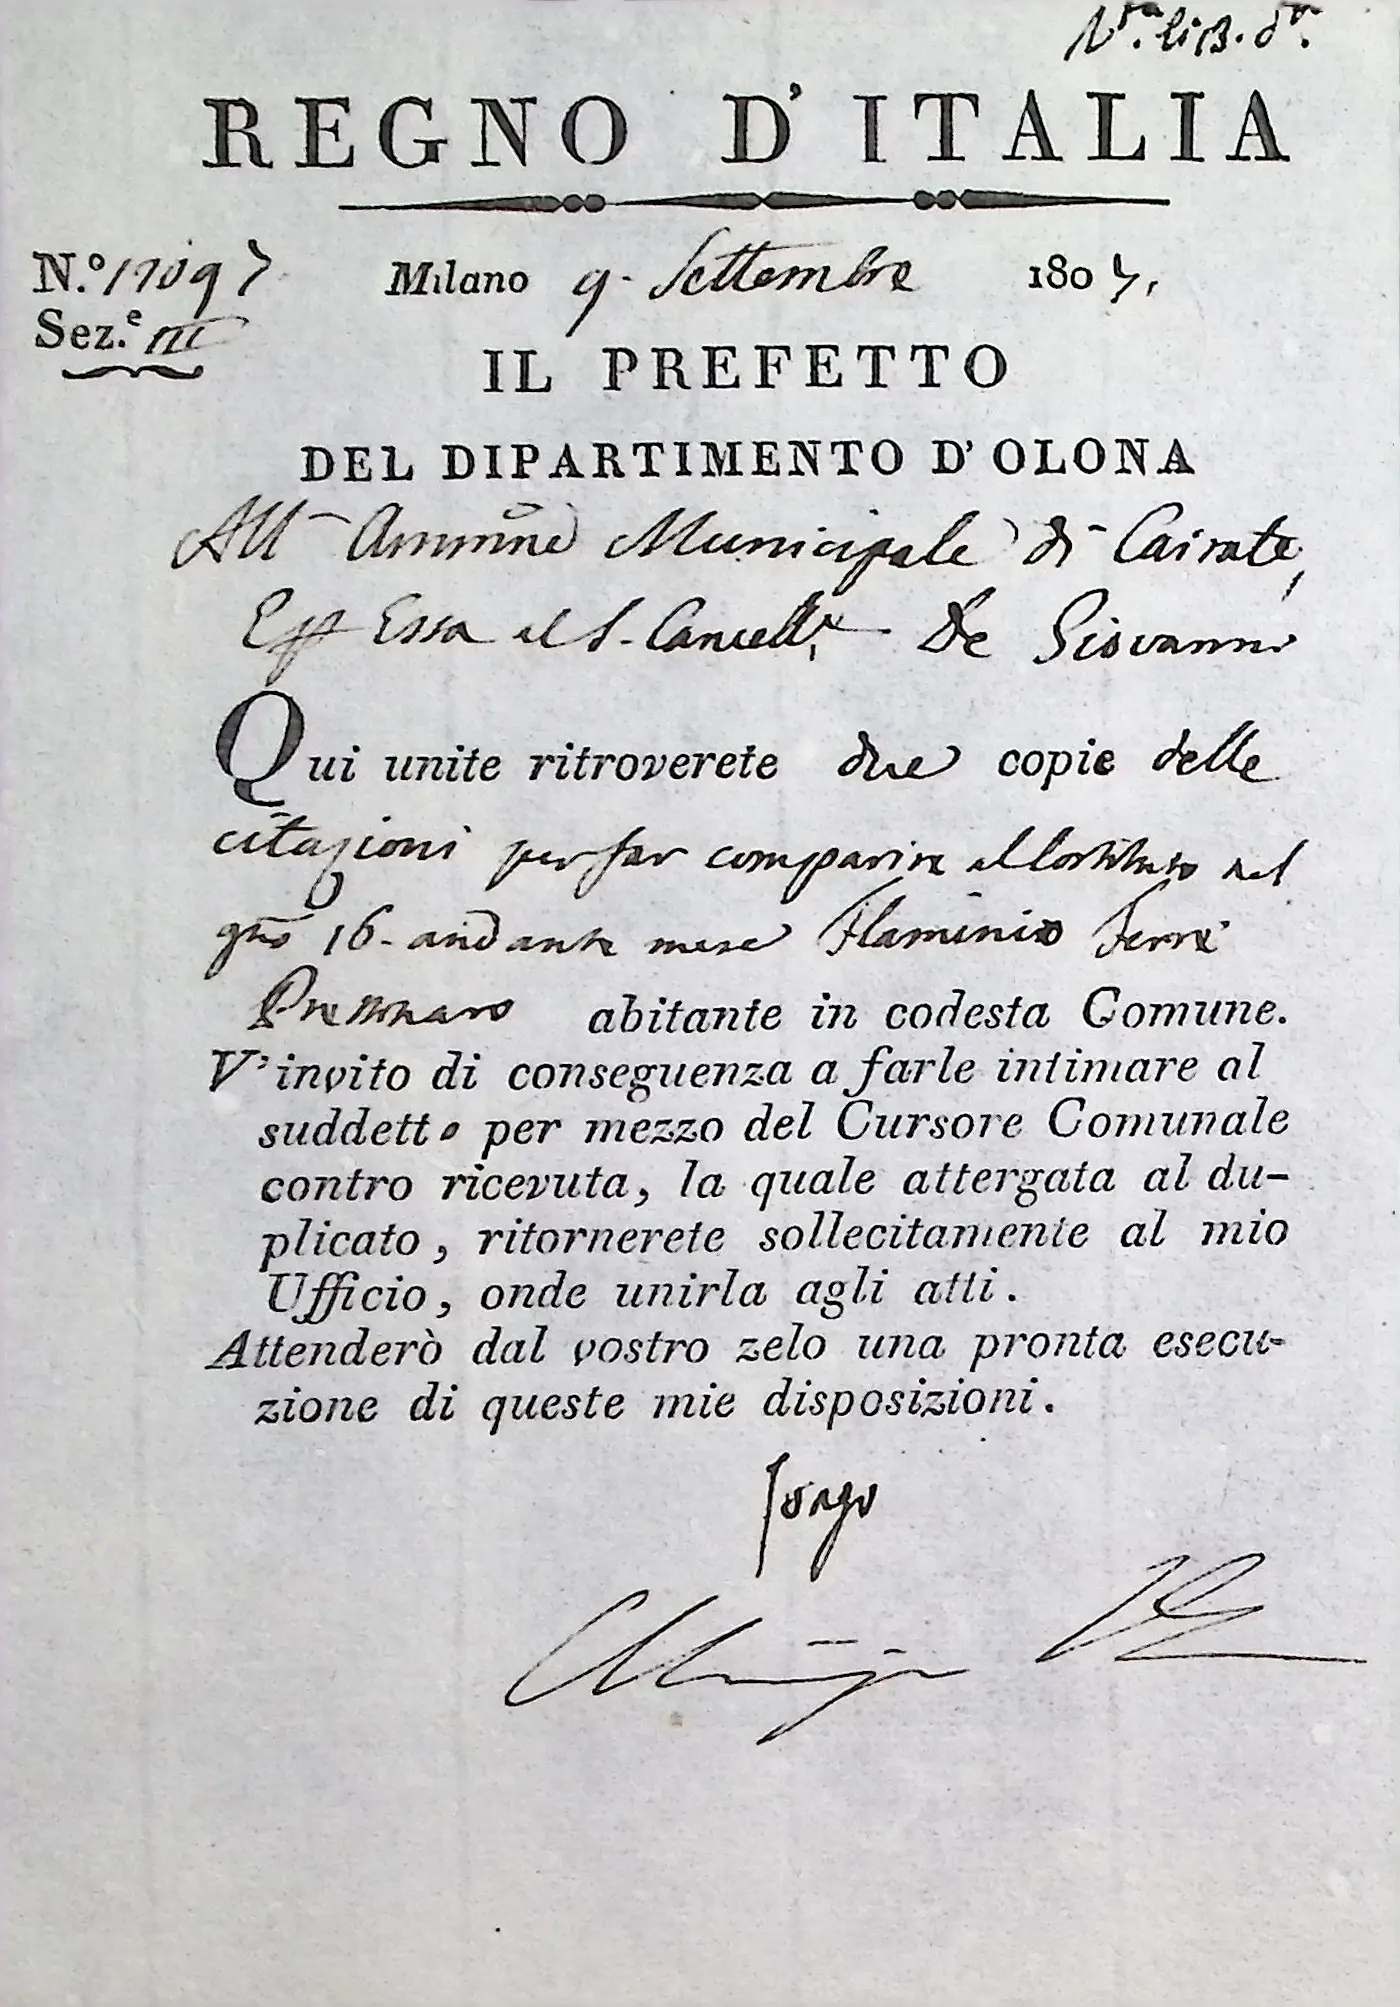 REGNO D'ITALIA
N.º 17097
Milano 9. Settembre 1807,
Sez.e III
IL PREFETTO
DEL DIPARTIMENTO D'OLONA
All Ammne Municipale di Cairate,
Essa al S. Cancell.e De Giovanni
Qui unite ritroverete due copie delle
citazioni per far comparire nel
gno 16. andante mese Flaminio Ferrè
abitante in codesta Comune.
V'invito di conseguenza a farle intimare al
suddetto per mezzo del Cursore Comunale
contro ricevuta, la quale attergata al du-
plicato, ritornerete sollecitamente al mio
Ufficio, onde unirla agli atti.
Attenderò dal vostro zelo una pronta esecu-
zione di queste mie disposizioni.